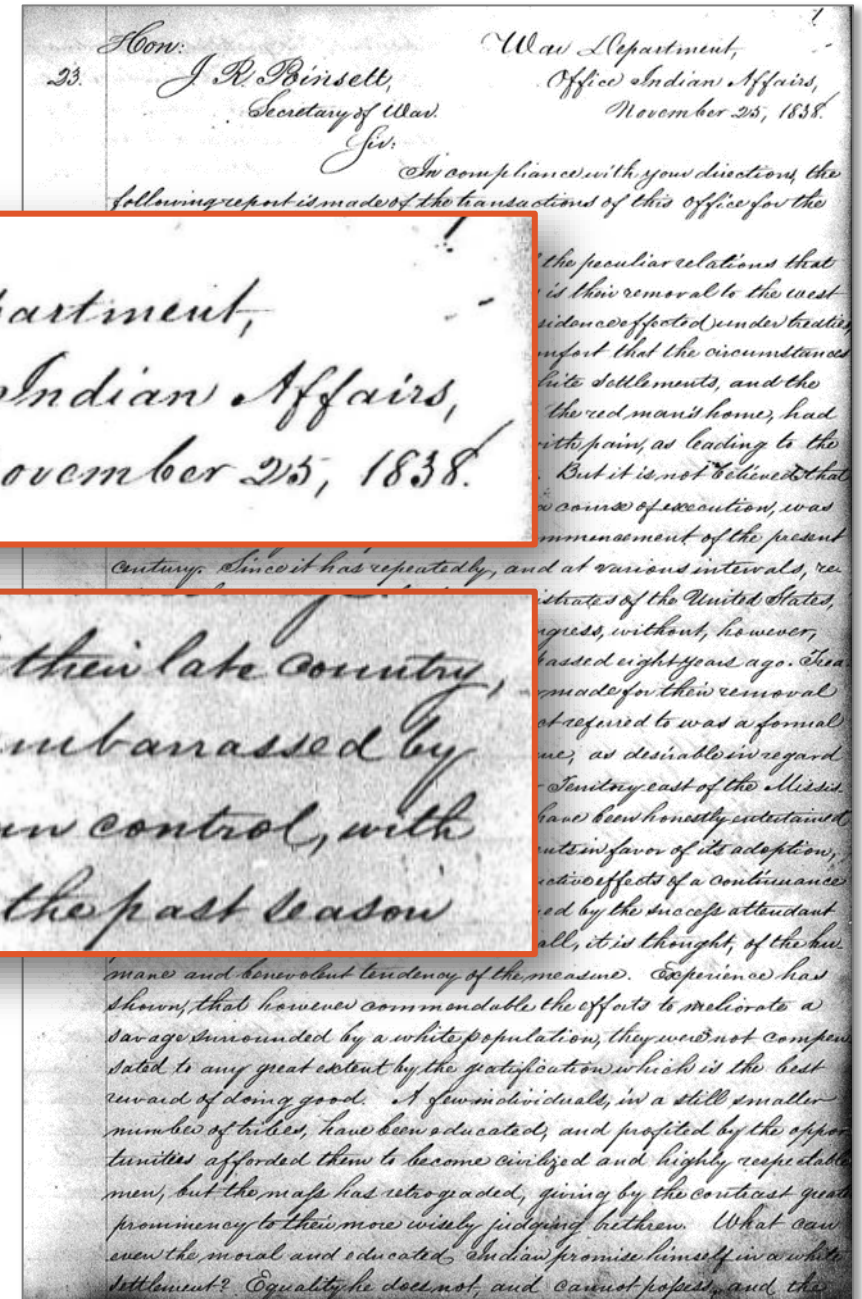 Hon:
War Department,
23.
J. R. Poinsett,
Office Indian Affairs,
Secretary of War.
November 25, 1838.
Sir:
In compliance with your directions, the
following report is made of the transactions of this office for the
partment,
Indian Affairs,
ovember 25, 1838.
the peculiar relations that
is their removal to the west
sidence effected under treaties,
mfort that the circumstances
hite settlements, and the
the red man's home, had
ith pain, as leading to the
But it is not believed that
a course of execution, was
mmencement of the present
century. Since it has repeatedly, and at various intervals, re
their late country,
mbarrassed by
un control, with
the past season
istrates of the United States,
ngress, without, however,
passed eight years ago. Trea
made for their removal
ct referred to was a formal
ue, as desirable in regard
Territory east of the Missis
have been honestly entertained
nts in favor of its adoption,
ctive effects of a continuance
ed by the success attendant
all, it is thought, of the hu-
mane and benevolent tendency of the measure. Experience has
shown, that however commendable the efforts to meliorate a
savage surrounded by a white population, they were not compen
sated to any great extent by the gratification which is the best
reward of doing good. A few individuals, in a still smaller
number of tribes, have been educated, and profited by the oppor
tunities afforded them to become civilized and highly respectable
men, but the mass has retrograded, giving by the contrast great
prominency to their more wisely judging brethren. What can
even the moral and educated Indian promise himself in a white
settlement? Equality he does not, and cannot possess, and the